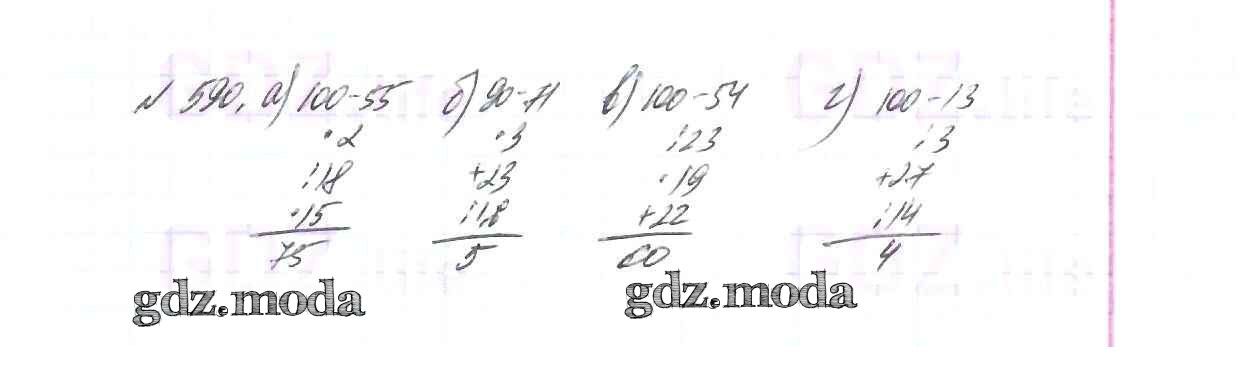 № 590. а) 100-55 б) 90-71 в) 100-54 г) 100-13
·2 ·3 :23 :3
:18 +23 ·19 +27
·15 :18 +22 :14
75 5 60 4
gdz.moda gdz.moda